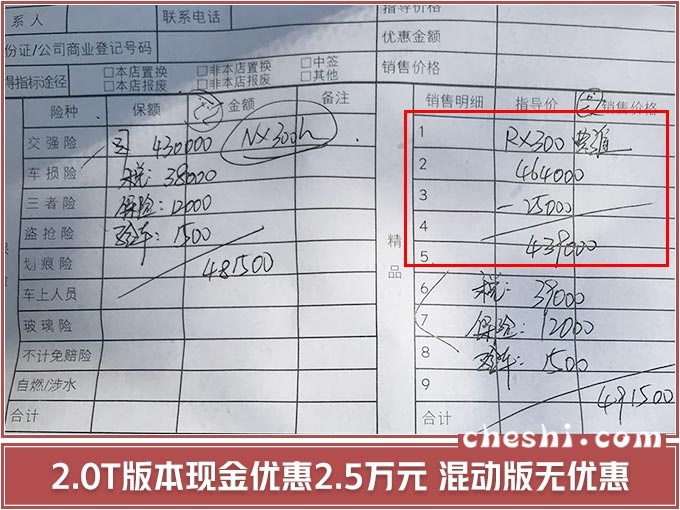 系人
联系电话
指导价格
份证/公司商业登记号码
优惠金额
得指标途径
□本店置换 □非本店置换 □中签
□本店报废 □非本店报废 □其他
销售价格
险种 保额 金额 备注
交强险 430000 NX300h
车损险 税：38000
三者险 保险：12000
盗抢险 验车：1500
划痕险 481500
车上人员
玻璃险
不计免赔险
自燃/涉水
合计
精品
销售明细 指导价 销售价格
1 RX300
2 464000
3 -25000
4
5 439000
6 税：39000
7 保险：12000
8 验车：1500
9 491500
合计
cheshi.com
2.0T版本现金优惠2.5万元 混动版无优惠